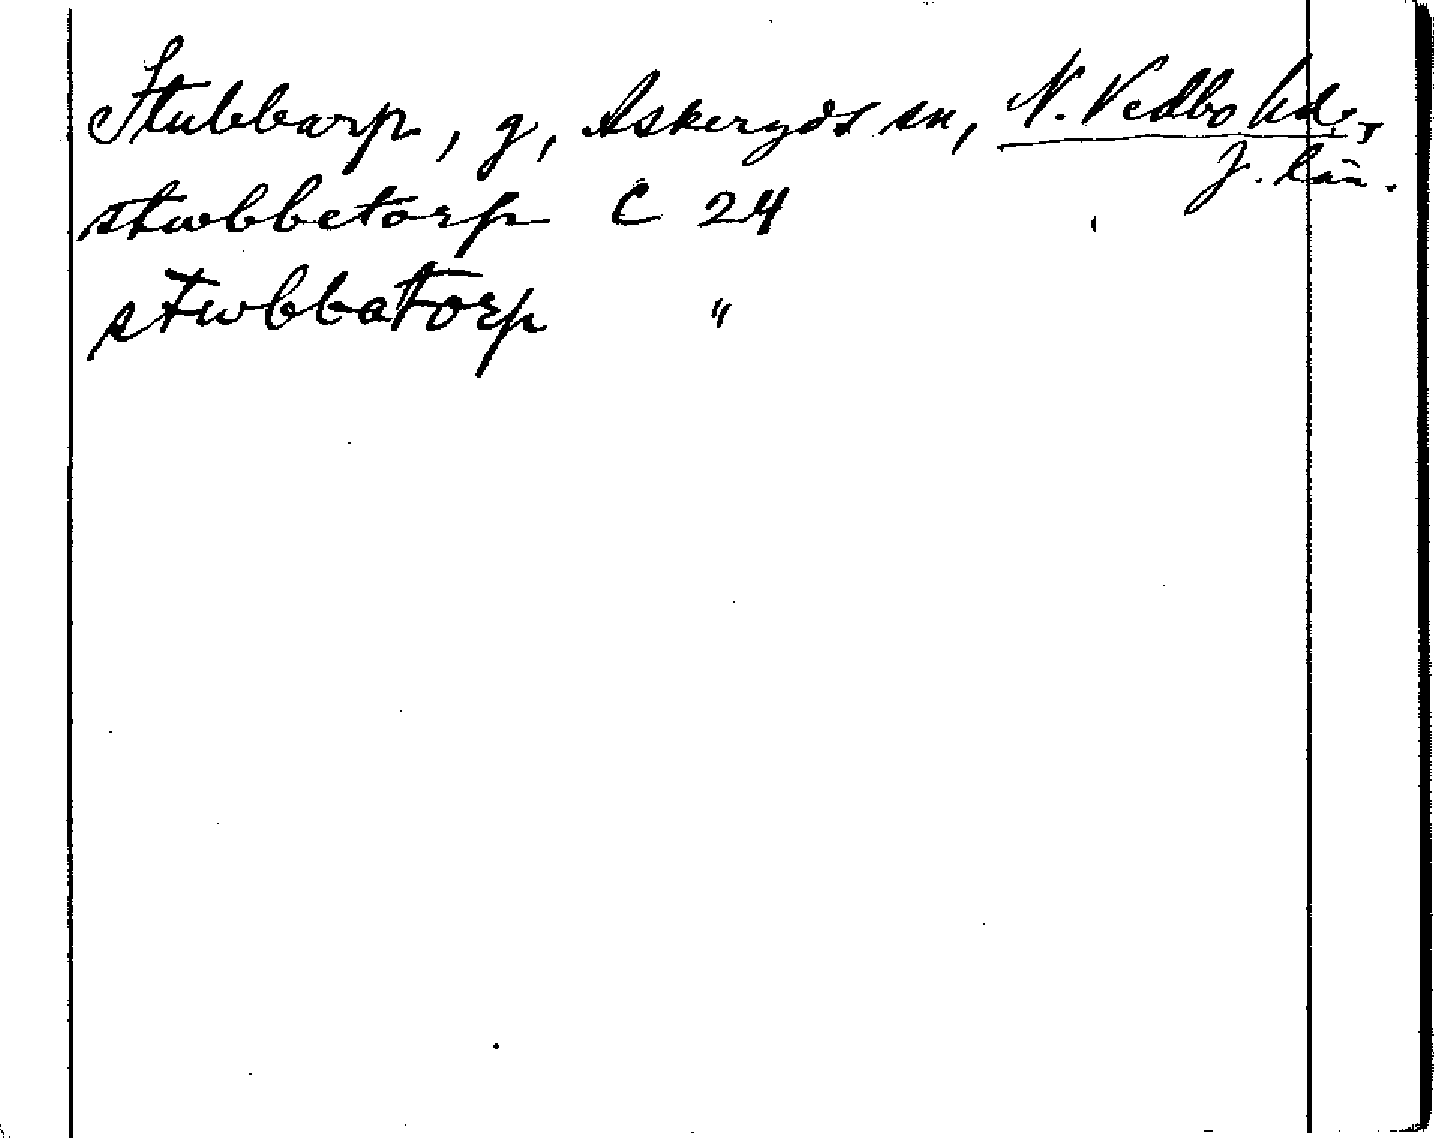 Stubbarp, g, Askeryds sn, N. Vedbo hd.,
J. län.
stwbbetorp C 24
stwbbatorp "